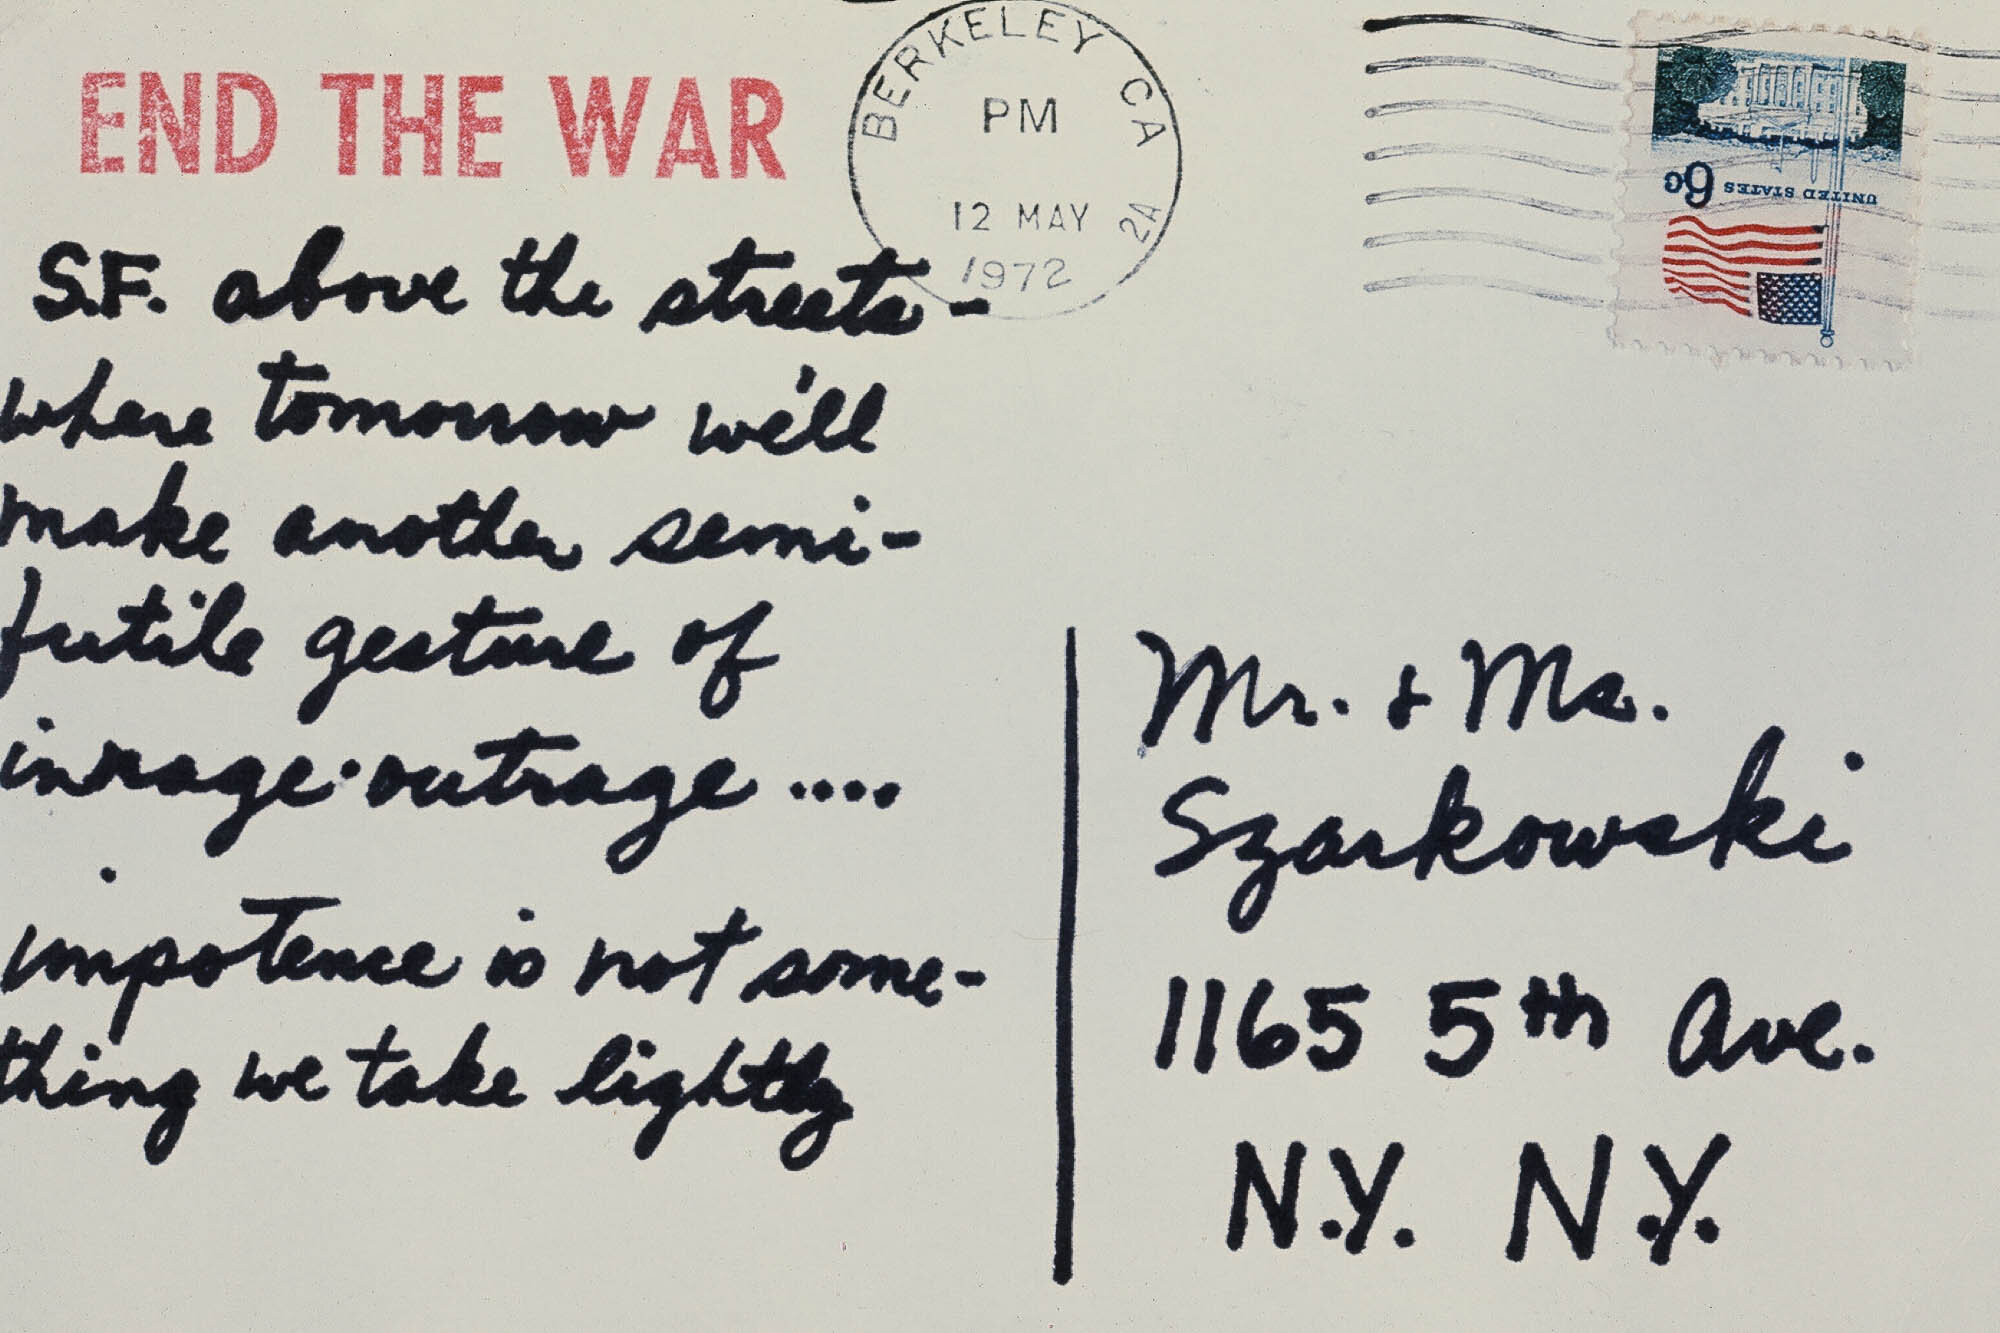 END THE WAR
BERKELEY CA
PM
12 MAY
2A
1972
6c UNITED STATES
S.F. above the streets-
where tomorrow we'll
make another semi-
futile gesture of
inrage·outrage ....
impotence is not some-
thing we take lightly
Mr. & Ms.
Szarkowski
1165 5th Ave.
N.Y. N.Y.